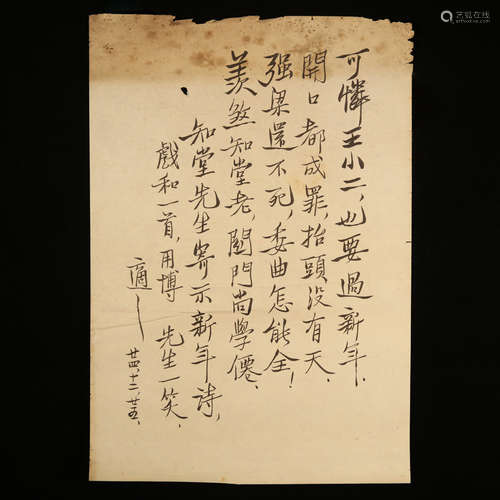 可憐王小二，也要過新年．
開口都成罪，抬頭沒有天．
强梁還不死，委曲怎能全！
羨煞知堂老，關門尚學僊．
知堂先生寄示新年詩，
戲和一首，用博 先生一笑．
適
廿四，十二，廿五．
艺狐在线
www.artfoxlive.com